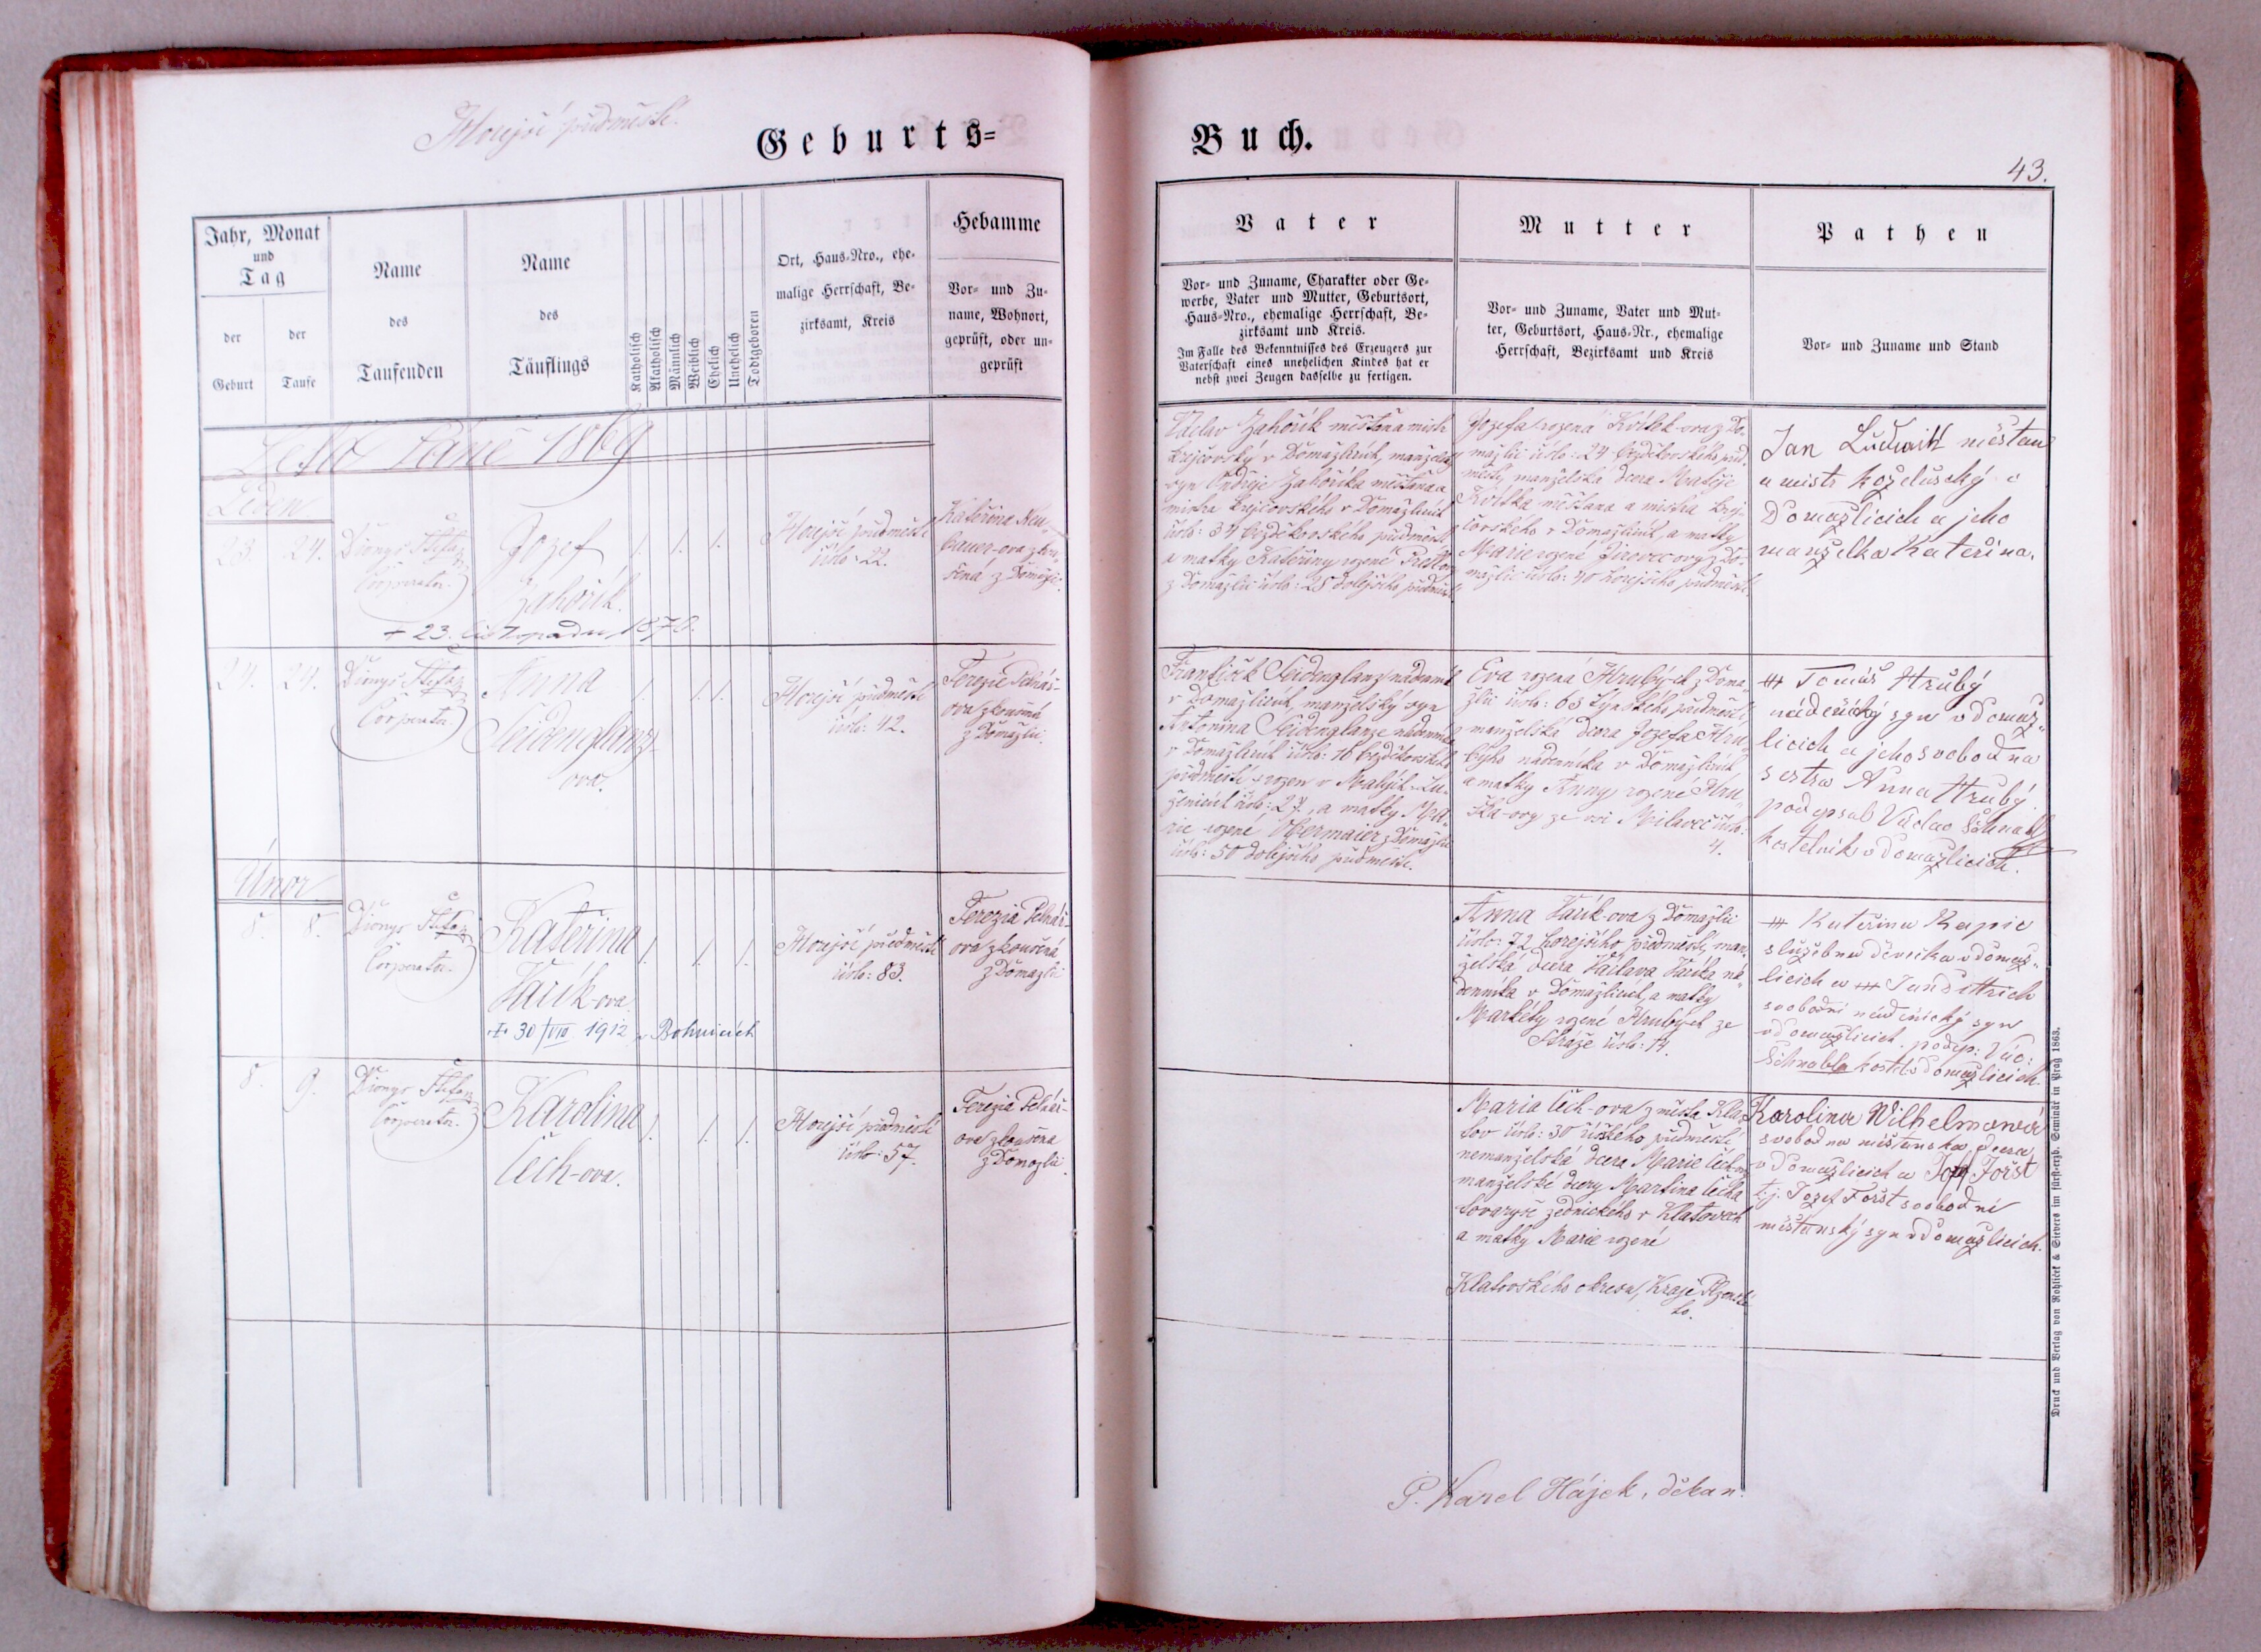 Horejší předměstí.
Geburts=
Buch.
43.
Jahr, Monat
und
Tag
der
Geburt
der
Taufe
Name
des
Taufenden
Name
des
Täuflings
Katholisch
Akatholisch
Männlich
Weiblich
Ehelich
Unehelich
Todtgeboren
Ort, Haus-Nro., ehe-
malige Herrschaft, Be-
zirksamt, Kreis
Hebamme
Vor- und Zu-
name, Wohnort,
geprüft, oder un-
geprüft
Vater
Vor- und Zuname, Charakter oder Ge-
werbe, Vater und Mutter, Geburtsort,
Haus-Nro., ehemalige Herrschaft, Be-
zirksamt und Kreis.
Im Falle des Bekenntnisses des Erzeugers zur
Vaterschaft eines unehelichen Kindes hat er
nebst zwei Zeugen dasselbe zu fertigen.
Mutter
Vor- und Zuname, Vater und Mut-
ter, Geburtsort, Haus-Nr., ehemalige
Herrschaft, Bezirksamt und Kreis
Pathen
Vor- und Zuname und Stand
Léta Páně 1869
Leden
23.
24.
Dionys Štefan
Cooperator.
Jozef
Zahořík.
+ 23. listopadu 1870.
1. 1. 1.
Horejší předměstí
číslo: 22.
Kateřina Neu-
bauer-ova zkou-
šená z Domažlic.
Václav Zahořík měšťan a mistr
krejčovský v Domažlicích, manželský
syn Ondřeje Zahoříka měšťana a
mistra krejčovského v Domažlicích
číslo: 34 bezděkovského předměstí
a matky Kateřiny rozené
z Domažlic číslo: 25 dolejšího předměstí
Jozefa rozená Květek-ova z Do-
mažlic číslo: 24 bezděkovského před-
městí, manželská dcera Matěje
Květka měšťana a mistra krej-
čovského v Domažlicích, a matky
Marie rozené Jirovec-ovy z Do-
mažlic číslo: 40 horejšího předměstí.
Jan Ludwik měšťan
a mistr koželužský v
Domažlicích a jeho
manželka Kateřina.
24.
24.
Dionys Štefan
Cooperator.
Anna
Seidenglanz-
ova.
1. 1. 1.
Horejší předměstí
číslo: 42.
Terezie Pelnář-
ova zkoušená
z Domažlic.
František Seidenglanz nádenník
v Domažlicích, manželský syn
Antonína Seidenglanze nádenníka
v Domažlicích číslo: 16 bezděkovského
předměstí, rozen v Malých Lu-
ženicích číslo: 27, a matky Ma-
rie rozené Obermaier z Domažlic
číslo: 50 dolejšího předměstí.
Eva rozená Hrubý-ch z Doma-
žlic číslo: 65 týnského předměstí,
manželská dcera Jozefa Hru-
býho nádenníka v Domažlicích
a matky Anny rozené Hru-
ška-ovy ze vsi Milavec číslo:
4.
+++ Tomáš Hrubý
nádenický syn v Domaž-
licich a jeho svobodna
sestra Anna Hrubý.
podepsal Václav Schnabl
kostelník v Domažlicich.
Únor
8.
8.
Dionys Štefan
Cooperator.
Kateřina
Vařík-ova.
+ 30/VIII 1912 v Bohnicích
1. 1. 1.
Horejší předměstí
číslo: 83.
Terezia Pelnář-
ova zkoušená
z Domažlic
Anna Vařík-ova z Domažlic
číslo: 72 horejšího předměstí, man-
želská dcera Václava Vaříka ná-
denníka v Domažlicích, a matky
Markéty rozené Hrubý-ch ze
Stráže číslo: 14.
+++ Kateřina Kapic
služebna děvečka v Domaž-
licich a +++ Jan Dittrich
svobodní nádenický syn
v Domažlicich. podep: Vác:
Schnabl kostel: v Domažlicich.
8.
9.
Dionys Štefan
Cooperator.
Karolina
Čech-ova.
1. 1. 1.
Horejší předměstí
číslo: 57.
Terezia Pelnář-
ova zkoušena
z Domažlic.
Maria Čech-ova z města Kla-
tov číslo: 30 předměstí
nemanželská dcera Marie Čech-ovy
manželské dcery Martina Čecha
tovaryše zednického v Klatovech
a matky Marie rozené
Klatovského okresu, Kraje Plzenské-
ho.
Karolina Wilhelmowá
svobodna měšťanska dcera
v Domažlicich a Josef Foršt
t.j. Jozef Foršt svobodní
měšťanský syn v Domažlicich.
P. Karel Hájek, děkan.
Druck und Verlag von Rohliček & Sievers im fürst-erzb. Seminär in Prag 1863.